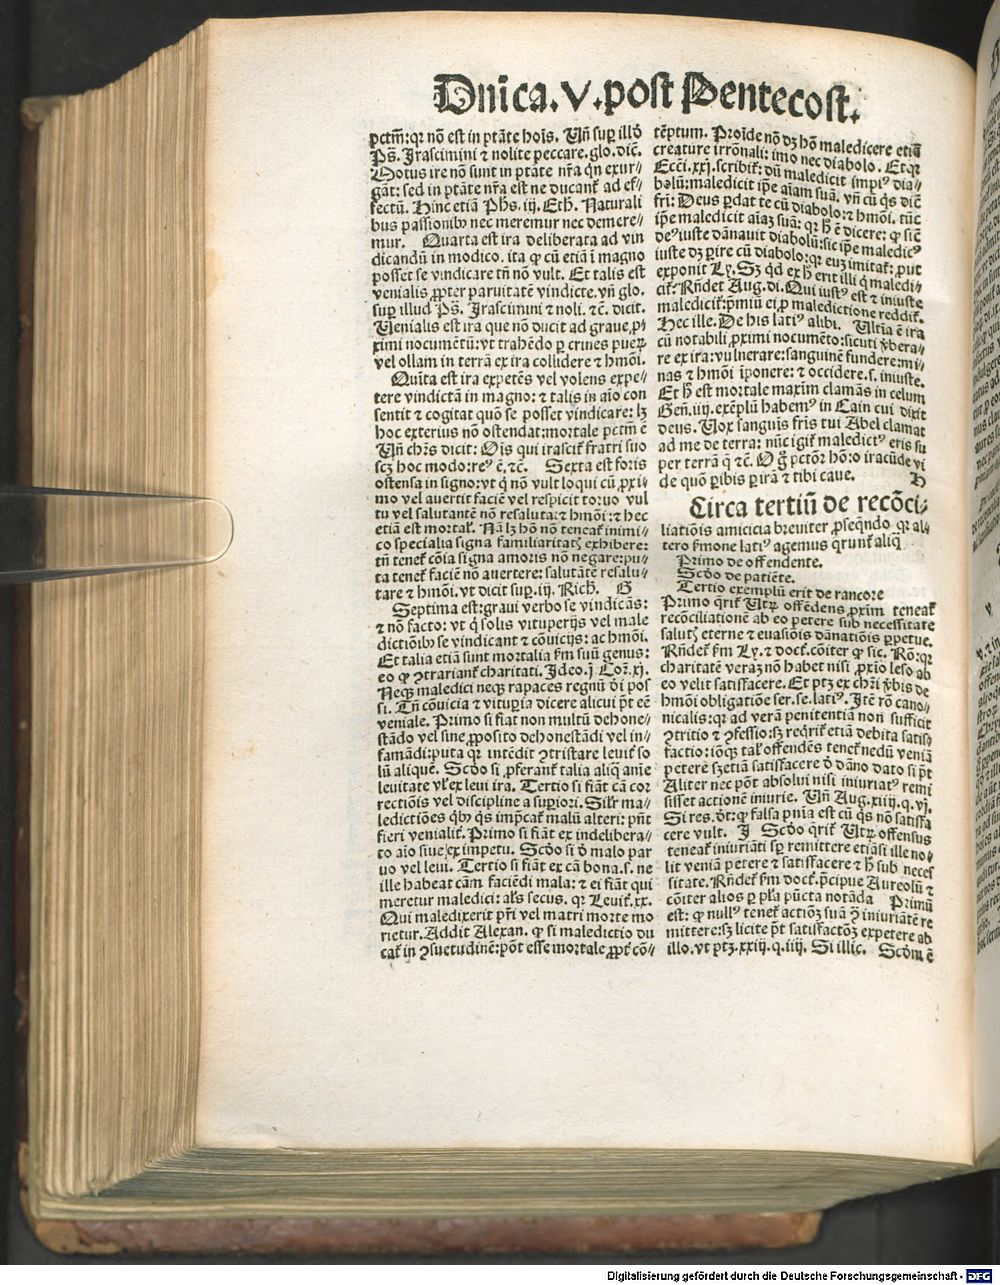 Dn̄ica.V.post Pentecost.
pctm̄:qꝛ nō est in ptāte hoīs. Vn̄ sup illō
Ps̄. Irascimini ⁊ nolite peccare.glo.dic̄.
Motus ire nō sunt in ptāte nr̄a qn̄ exur⸗
gāt: sed in ptāte nr̄a est ne ducant̉ ad ef⸗
fectū. Hinc etiā Ph̄s. iij. Eth̄. Naturali
bus passionibꝰ nec meremur nec demere⸗
mur. Quarta est ira deliberata ad vin
dicandū in modico. ita ꝙ cū etiā ī magno
posset se vindicare tn̄ nō vult. Et talis est
venialis ꝓpter paruitatē vindicte.vn̄ glo.
sup illud Ps̄. Irascimini ⁊ noli. ⁊c̄. dicit.
Venialis est ira que nō ducit ad graue ꝓ⸗
ximi nocumētū: vt trahēdo ꝑ crines pueꝝ
vel ollam in terrā ex ira collidere ⁊ hmōi.
Quīta est ira expetēs vel volens expe⸗
tere vindictā in magno: ⁊ talis in aīo con
sentit ⁊ cogitat quō se posset vindicare: lꝫ
hoc exterius nō ostendat:mortale pctm̄ ē
Vn̄ chr̄s dicit: Oīs qui irascit̉ fratri suo
scꝫ hoc modo:reꝰ ē.⁊c̄. Sexta est foris
ostensa in signo:vt q̇ nō vult loqui cū ꝓxi⸗
mo vel auertit faciē vel respicit toruo vul
tu vel salutantē nō resalutat:⁊ hmōi:⁊ hec
etiā est mortal̉. Nā lꝫ hō nō teneat̉ inimi⸗
co specialia signa familiaritatꝭ exhibere:
tn̄ tenet̉ cōia signa amoris nō negare:pu⸗
ta tenet̉ faciē nō auertere: salutātē resalu⸗
tare ⁊ hmōi. vt dicit sup. iij. Rich̄. G
Septima est:graui verbo se vindicās:
⁊ nō facto: vt q̇ solis vituperijs vel male
dictiōibꝰ se vindicant ⁊ cōuicijs: ac hmōi.
Et talia etiā sunt mortalia ẜm suū genus:
eo ꝙ ꝯtrariant̉ charitati. Ideo.j. Cor̄.xj.
Neqꝫ maledici neqꝫ rapaces regnū dei pos
si. Tn̄ cōuicia ⁊ vituꝑia dicere alicui pōt eē
veniale. Primo si fiat non multū dehone⸗
stādo vel sine ꝓposito dehonestādi vel in⸗
famādi:puta qꝛ intēdit ꝯtristare leuit̉ so
lū aliquē. Scdo si ꝓferant̉ talia aliq̄ anīe
leuitate vl̉ ex leui ira. Tertio si fiāt cā cor
rectiōis vel discipline a superiori. Silr̄ ma⸗
ledictiōes qbꝰ qs imp̄cat̉ malū alteri: pn̄t
fieri venialit̉. Primo si fiāt ex indelibera⸗
to aīo siue ex impetu. Scdo si ō malo par
uo vel leui. Tertio si fiāt ex cā bona.s. ne
ille habeat cām faciēdi mala: ⁊ ei fiāt qui
meretur maledici: als̄ secus. qꝛ Leuit̉.xx.
Qui maledixerit pr̄i vel matri morte mo
rietur. Addit Alexan. ꝙ si maledictio du
cat̉ in ꝯsuetudinē:pōt esse mortale ꝓpt̉ cō⸗
tēptum. Proīde nō dꝫ hō maledicere etiā
creature irrōnali: imo nec diabolo. Et qꝛ
Ecci.xxj.scribit̉: dū maledicit impiꝰ dia⸗
bolū:maledicit ip̄e aīam suā. vn̄ cū qs dic̄
fri: Deus ꝑdat te cū diabolo:⁊ hmōi. tūc
ip̄e maledicit aīaꝫ suā: qꝛ h̄ ē dicere: ꝙ sic̄
deꝰ iuste dānauit diabolū:sic ip̄e maledicꝰ
iuste dꝫ ꝑire cū diabolo:qꝛ euꝫ imitat̉: ꝓut
exponit Ly. Sꝫ qd ex h̄ erit illi q̇ maledi⸗
cit̉. Rn̄det Aug.di. Qui iustꝰ est ⁊ iniuste
maledicit̉:p̄miū ei ꝓ maledictione reddit̉.
Hec ille. De his latiꝰ alibi. Vltīa ē ira
cū notabili ꝓximi nocumēto:sicuti v̄bera⸗
re ex ira:vulnerare:sanguinē fundere:mi⸗
nas ⁊ hmōi īponere: ⁊ occidere.s. iniuste.
Et h̄ est mortale maxim̄ clamās in celum
Gen̄.iiij.exēplū habemꝰ in Cain cui dixit
deus. Vox sanguīs fr̄is tui Abel clamat
ad me de terra: nūc igit̉ maledictꝰ eris su
per terrā q̄ ⁊c̄. O g̊ pctōr hō:o iracūde vi
de quō ꝑibis ꝑ irā ⁊ tibi caue. H
Circa tertiū de recōci⸗
liatiōis amicicia breuiter ꝓseqn̄do qꝛ al⸗
tero ẜmone latiꝰ agemus qrunt̉ aliq̄
Primo de offendente.
Scdo de patiēte.
Tertio exemplū erit de rancore
Primo qrit̉ Vtꝝ offēdens ꝓxim̄ teneat̉
recōciliationē ab eo petere sub necessitate
salutꝭ eterne ⁊ euasiōis dānatiōis ꝑpetue.
Rn̄det̉ ẜm Ly.⁊ doct.cōiter ꝙ sic. Rō:qꝛ
charitatē veraꝫ nō habet nisi ꝓxīo leso ab
eo velit satisfacere. Et ptꝫ ex chr̄i v̄bis de
hmōi obligatiōe ser.se.latiꝰ. Itē rō cano⸗
nicalis:qꝛ ad verā penitentiā non sufficit
ꝯtritio ⁊ ꝯfessio:sꝫ reqrit̉ etiā debita satis⸗
factio:ioqꝫ tal̉ offendēs tenet̉ nedū veniā
petere sꝫ etiā satisfacere ō dāno dato si pōt
Aliter nec pōt absolui nisi iniuriatꝰ remi
sisset actionē iniurie. Vn̄ Aug.xiiij.q.vj.
Si res. ōt: ꝙ falsa pn̄ia est cū qs nō satisfa
cere vult. I Scdo qrit̉ Vtꝝ offensus
teneat̉ iniuriāti sp remittere etiāsi ille no⸗
lit veniā petere ⁊ satisfacere ⁊ h̄ sub neces
sitate. Rn̄det̉ ẜm doct̉.p̄cipue Aureolū ⁊
cōiter alios ꝑ pl̉a pūcta notāda Primū
est: ꝙ nullꝰ tenet̉ actiōꝫ suā ꝯ̄ iniuriātē re
mittere:sꝫ licite pōt satisfactōꝫ expetere ab
illo.vt ptꝫ.xxiij.q.iiij. Si illic. Scdm̄ ē
Digitalisierung gefördert durch die Deutsche Forschungsgemeinschaft - DFG